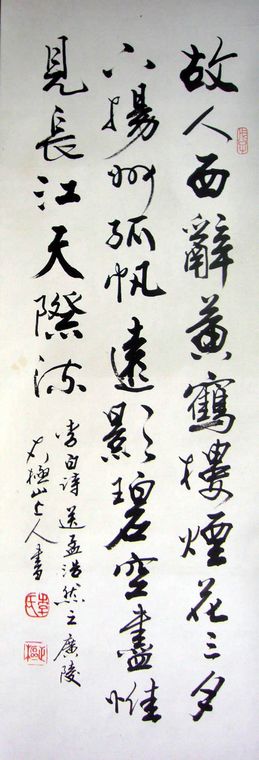 故人西辭黄鶴樓煙花三月
下揚州孤帆遠影碧空盡惟
見長江天際流
李白诗送孟浩然之廣陵
山人書
李氏